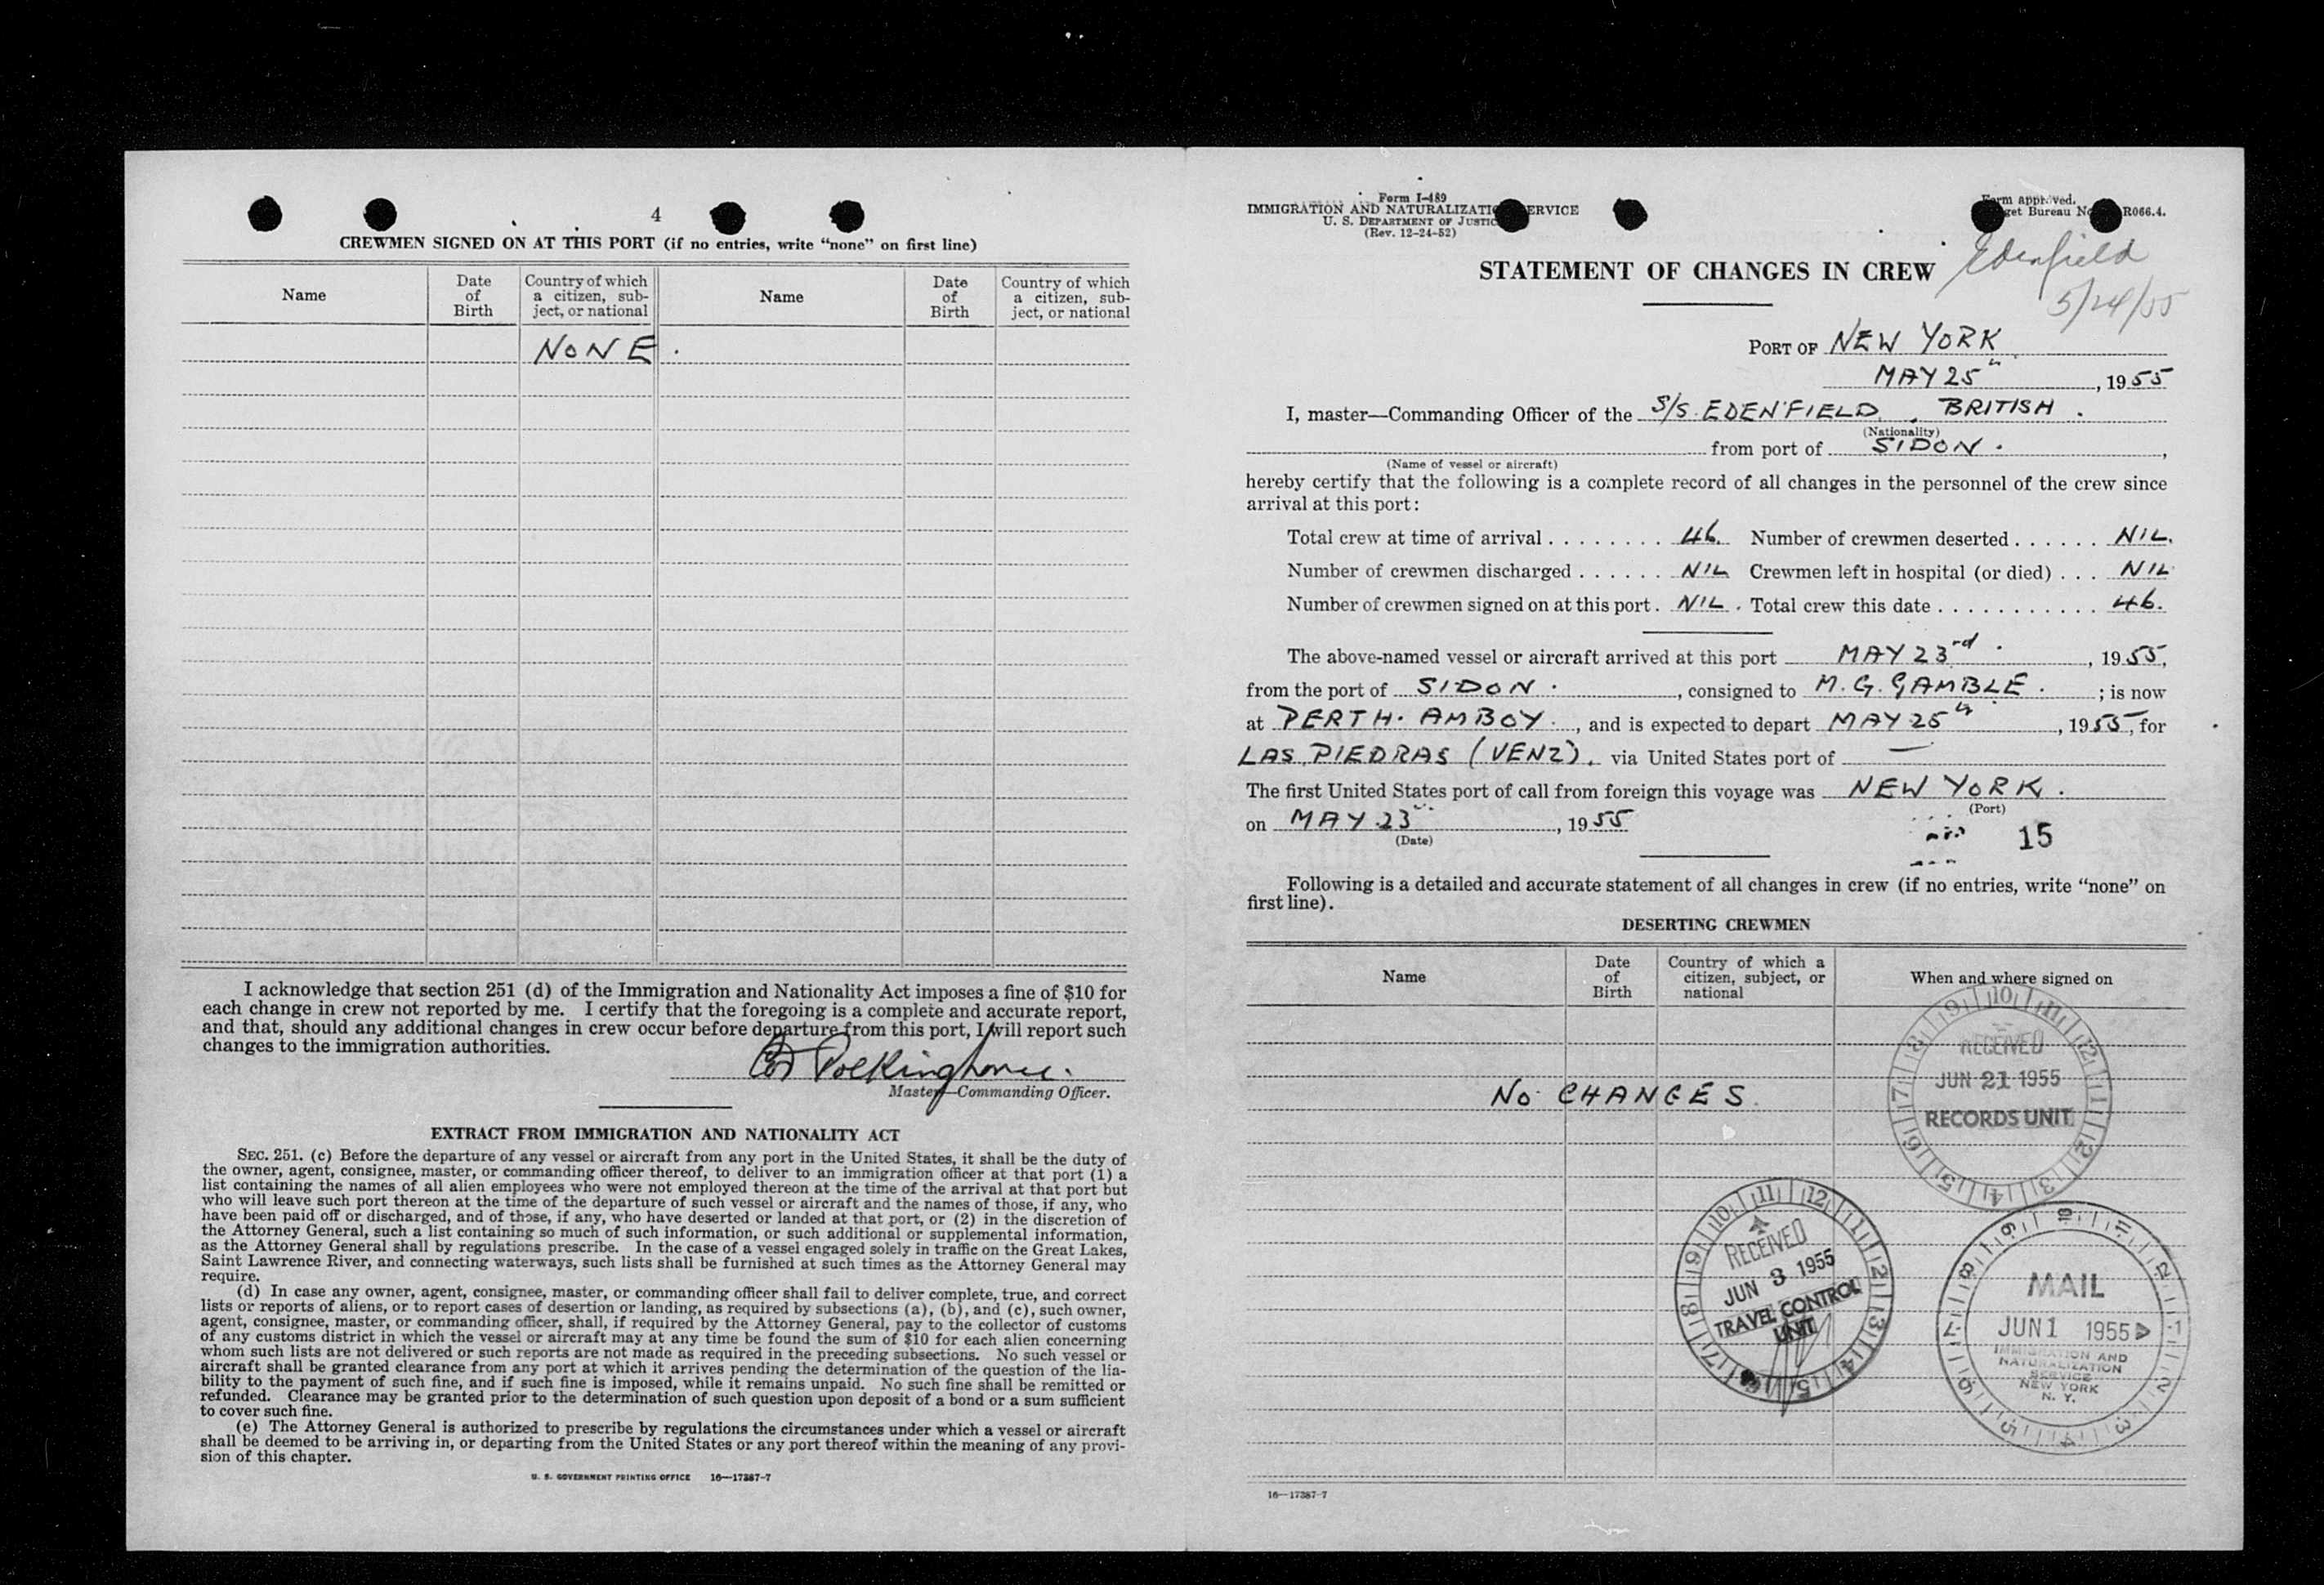 4
CREWMEN SIGNED ON AT THIS PORT (if no entries, write “none” on first line)
Name
Date of Birth
Country of which a citizen, sub-ject, or national
Name
Date of Birth
Country of which a citizen, sub-ject, or national
NONE.
I acknowledge that section 251 (d) of the Immigration and Nationality Act imposes a fine of $10 for
each change in crew not reported by me. I certify that the foregoing is a complete and accurate report,
and that, should any additional changes in crew occur before departure from this port, I will report such
changes to the immigration authorities.
Polkinghorne.
Master—Commanding Officer.
EXTRACT FROM IMMIGRATION AND NATIONALITY ACT
SEC. 251. (c) Before the departure of any vessel or aircraft from any port in the United States, it shall be the duty of
the owner, agent, consignee, master, or commanding officer thereof, to deliver to an immigration officer at that port (1) a
list containing the names of all alien employees who were not employed thereon at the time of the arrival at that port but
who will leave such port thereon at the time of the departure of such vessel or aircraft and the names of those, if any, who
have been paid off or discharged, and of those, if any, who have deserted or landed at that port, or (2) in the discretion of
the Attorney General, such a list containing so much of such information, or such additional or supplemental information,
as the Attorney General shall by regulations prescribe. In the case of a vessel engaged solely in traffic on the Great Lakes,
Saint Lawrence River, and connecting waterways, such lists shall be furnished at such times as the Attorney General may
require.
(d) In case any owner, agent, consignee, master, or commanding officer shall fail to deliver complete, true, and correct
lists or reports of aliens, or to report cases of desertion or landing, as required by subsections (a), (b), and (c), such owner,
agent, consignee, master, or commanding officer, shall, if required by the Attorney General, pay to the collector of customs
of any customs district in which the vessel or aircraft may at any time be found the sum of $10 for each alien concerning
whom such lists are not delivered or such reports are not made as required in the preceding subsections. No such vessel or
aircraft shall be granted clearance from any port at which it arrives pending the determination of the question of the lia-
bility to the payment of such fine, and if such fine is imposed, while it remains unpaid. No such fine shall be remitted or
refunded. Clearance may be granted prior to the determination of such question upon deposit of a bond or a sum sufficient
to cover such fine.
(e) The Attorney General is authorized to prescribe by regulations the circumstances under which a vessel or aircraft
shall be deemed to be arriving in, or departing from the United States or any port thereof within the meaning of any provi-
sion of this chapter.
U. S. GOVERNMENT PRINTING OFFICE 16—17387-7
Form I-489
IMMIGRATION AND NATURALIZATION SERVICE
U. S. DEPARTMENT OF JUSTICE
(Rev. 12-24-52)
Form approved.
Budget Bureau No. R066.4.
STATEMENT OF CHANGES IN CREW
Edenfield
5/24/55
PORT OF NEW YORK
MAY 25th, 1955
I, master—Commanding Officer of the S/S. EDENFIELD, BRITISH.
(Nationality)
from port of SIDON.,
(Name of vessel or aircraft)
hereby certify that the following is a complete record of all changes in the personnel of the crew since
arrival at this port:
Total crew at time of arrival . . . . . . . . 46. Number of crewmen deserted . . . . . . NIL.
Number of crewmen discharged . . . . . . NIL Crewmen left in hospital (or died) . . . NIL
Number of crewmen signed on at this port . NIL. Total crew this date . . . . . . . . . . . 46.
The above-named vessel or aircraft arrived at this port MAY 23rd, 1955,
from the port of SIDON., consigned to M. G. GAMBLE.; is now
at PERTH. AMBOY., and is expected to depart MAY 25th, 1955, for
LAS PIEDRAS (VENZ). via United States port of —
The first United States port of call from foreign this voyage was NEW YORK.
(Port)
on MAY 23, 1955
(Date)
15
Following is a detailed and accurate statement of all changes in crew (if no entries, write “none” on
first line).
DESERTING CREWMEN
Name
Date of Birth
Country of which a citizen, subject, or national
When and where signed on
NO CHANGES.
RECEIVED
JUN 21 1955
RECORDS UNIT
RECEIVED
JUN 3 1955
TRAVEL CONTROL
UNIT
MAIL
JUN 1 1955
IMMIGRATION AND
NATURALIZATION
SERVICE
NEW YORK
N. Y.
16—17387-7